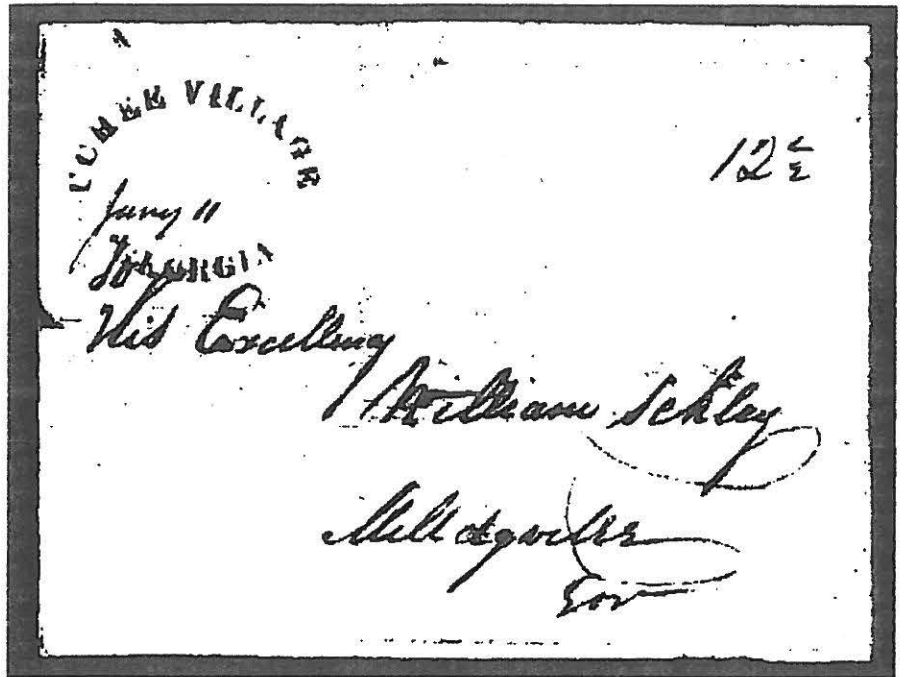 UCHEE VILLAGE
12½
Jany 11
To
GEORGIA
His Excellency
William Schley
Milledgville